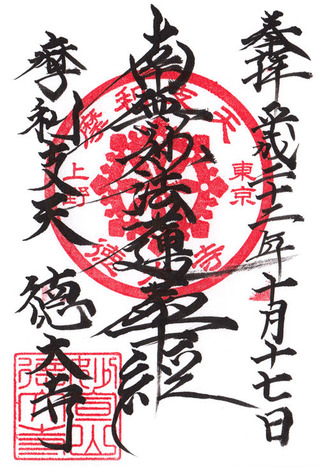 参拝 平成二十二年十月十七日
南無妙法蓮華経
摩利支天 徳大寺
摩利支天
東京
上野
徳大寺
妙宣山徳大寺